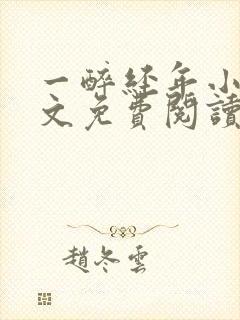 一醉经年小
文免費閱讀
趙冬雲